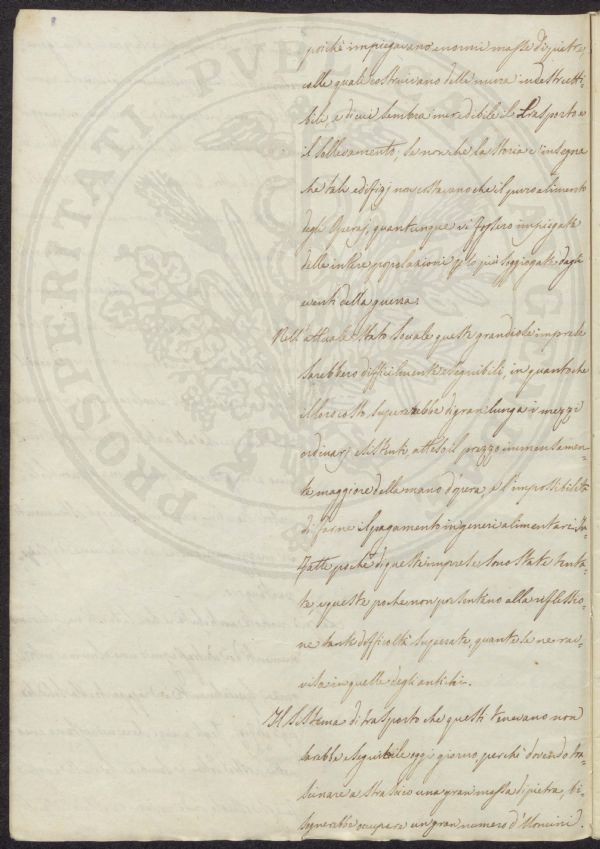 poiché impiegavano enormi masse di pietre,
colle quali costruivano delle mura indestrutti=
bili, e di cui sembra incredibile il trasporto ed
il sollevamento; se non che la storia c'insegna
che tali edifizj non costavano che il puro alimento
degli Operaj, quantunque vi fossero impiegate
delle intere popolazioni p lo più soggiogate dagli
eventi della guerra.
Nell'attuale stato sociale queste grandiose imprese
sarebbero difficilmente eseguibili, in quanto che
il loro costo supererebbe di gran lunga i mezzi
ordinarj esistenti, atteso il prezzo immensamen=
te maggiore della mano d'opera, e l'impossibilità
di farne il pagamento in generi alimentari. In
fatti poche di queste imprese sono state tenta=
te, e queste poche non presentano alla riflessio=
ne tante difficoltà superate, quante se ne rav=
visa in quelle degli antichi.
Il sistema di trasporto che questi tenevano non
sarebbe eseguibile oggi giorno, perché dovendo tra=
scinare a strascico una gran massa di pietra, bi=
sognerebbe occupare un gran numero d'Uomini.
PROSPERITATI PUBL